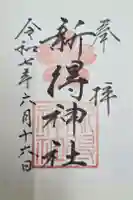 奉拝
新得神社
令和七年六月十六日